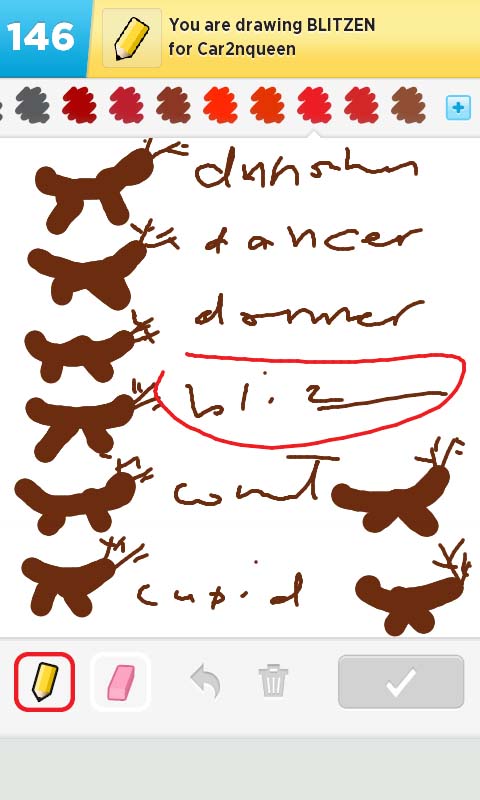 146
You are drawing BLITZEN
for Car2nqueen
dancer
donner
bliz
comet
cupid